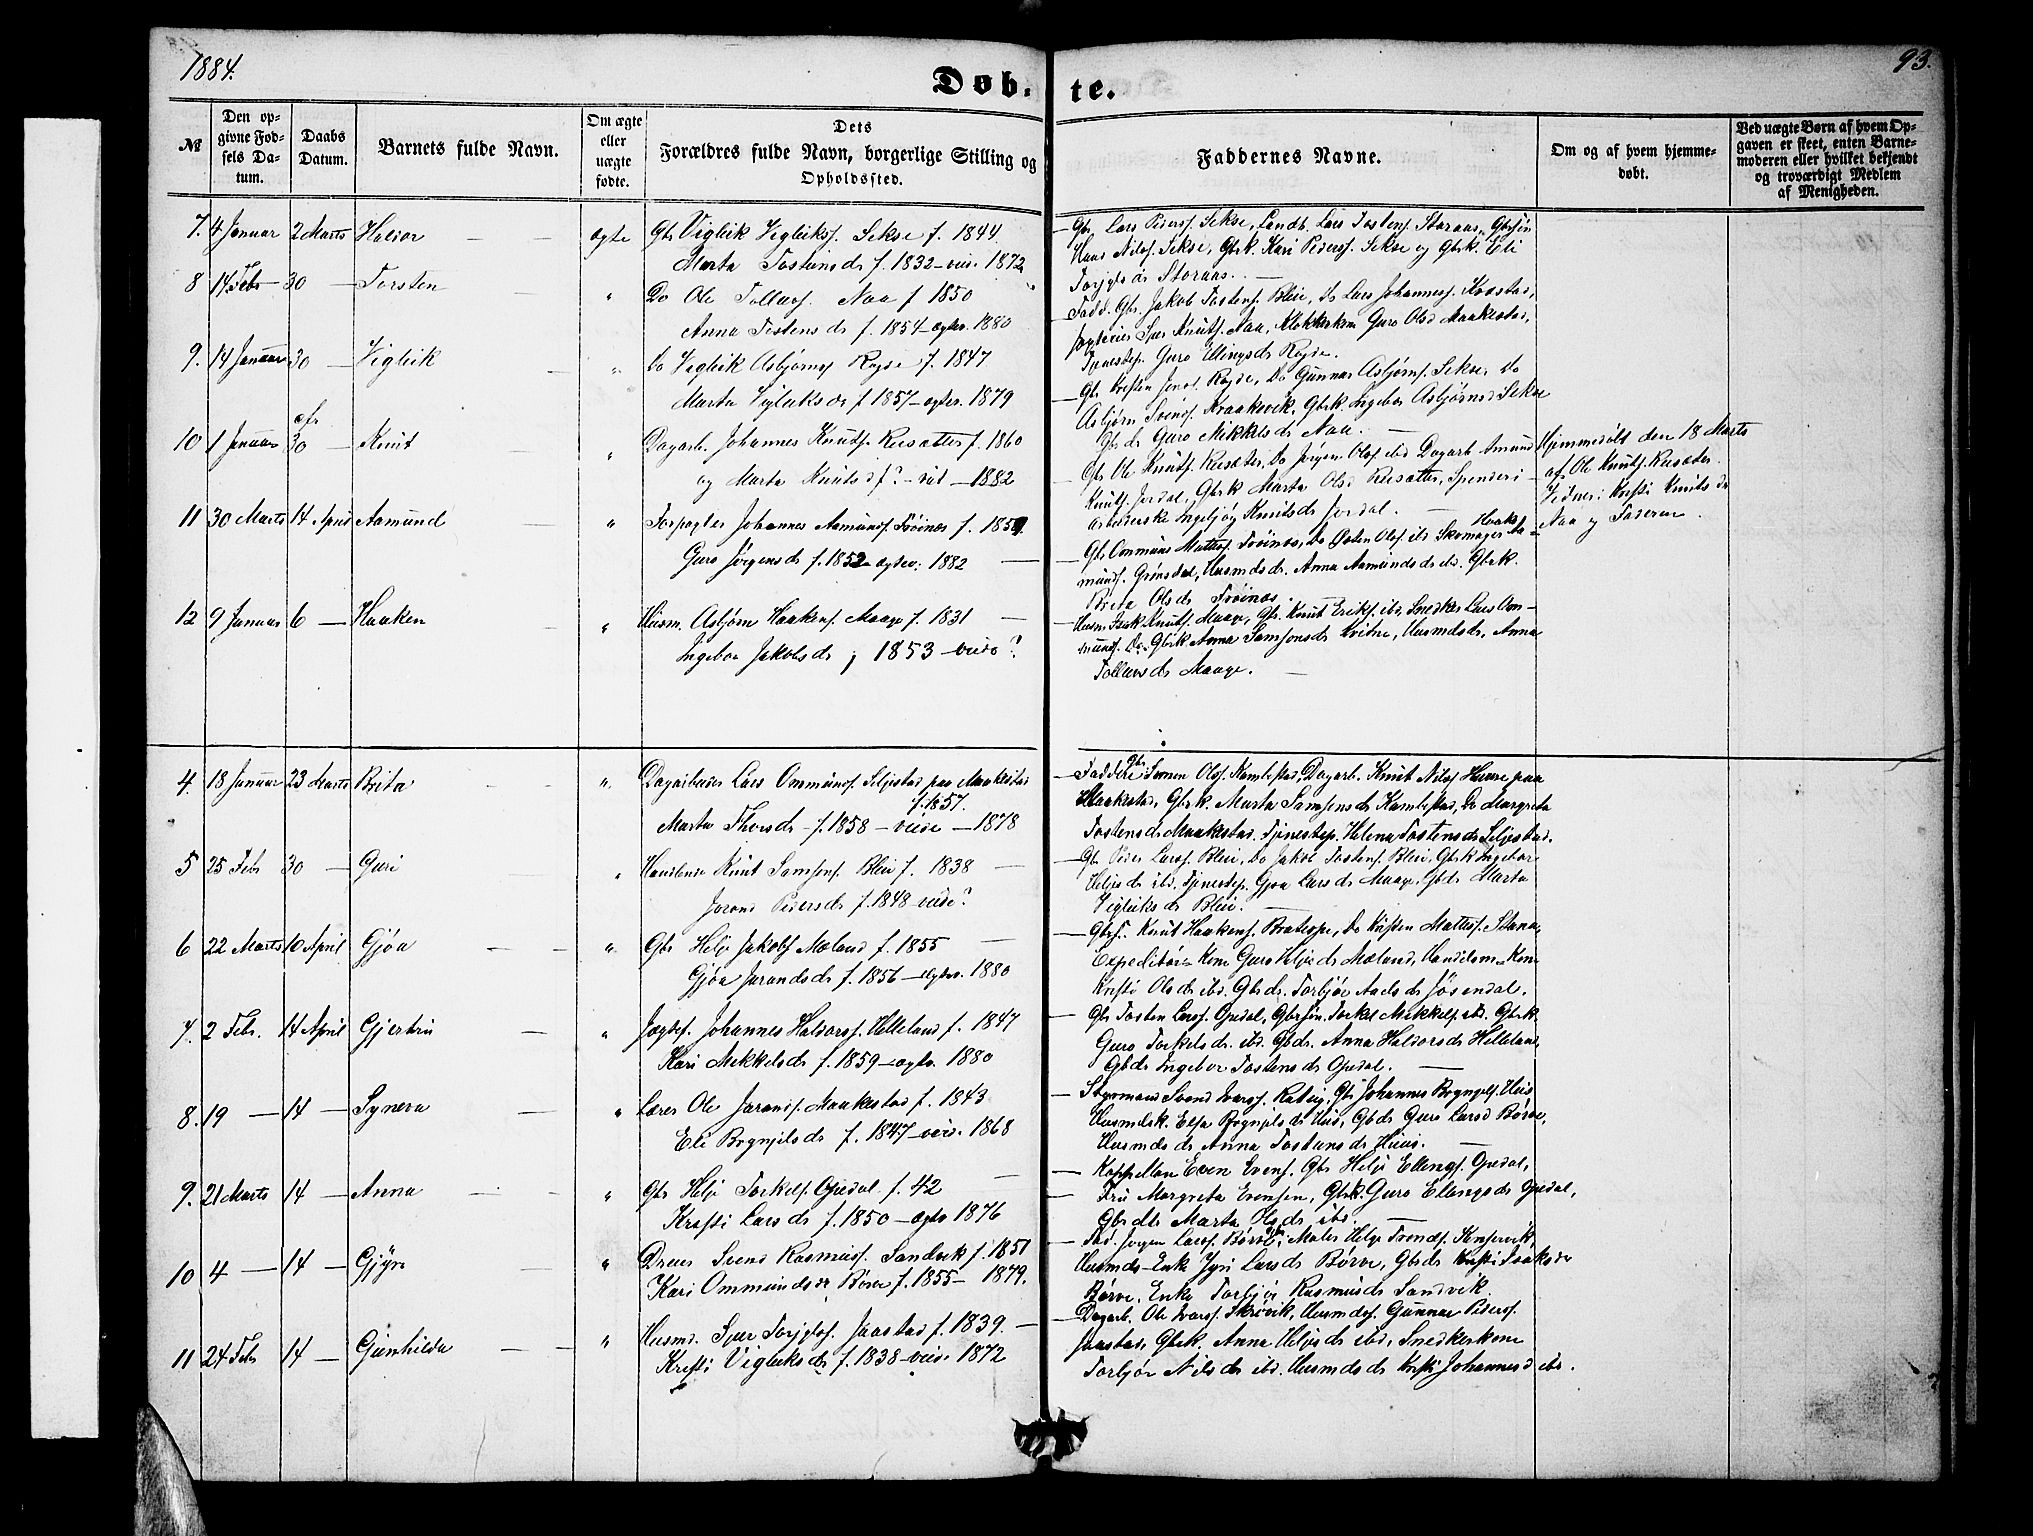 1884.
93.
Døb-te.
№
Den opgivne Fødsels Datum.
Daabs Datum.
Barnets fulde Navn.
Om ægte eller uægte fødte.
Dets Forældres fulde Navn, borgerlige Stilling og Opholdssted.
Faddernes Navne.
Om og af hvem hjemmedøbt.
Ved uægte Børn af hvem Opgaven er skeet, enten Barnemoderen eller hvilket bekjendt og troværdigt Medlem af Menigheden.
7. 4 Januar 2 Marts Halvor — — ægte Gbr Vigleik Vigleiksf. Sekse f. 1844
Marta Tosteinsdr f. 1832 — viede 1872
Gbr Lars Pedersf. Sekse, Landh. Lars Tostensf. Storaas, Gbrsøn
Hans Nilsf. Sekse, Gbrk. Kari Pedersf. Sekse og Gbrk. Eli
Storaas. —
8 14 Febr 30 — Torsten — " Do Ole Tollevsf. Naa f 1850
Anna Tostensdr f. 1854 — 1880
Fadd. Gbr. Jakob Tostensf. Bleie, Do Lars Johannesf. Kvæstad,
Knutsf. Naa, Klokkerkone Guro Olsd Maakestad,
Tjenestep. Guro Ellingsdr Røgde.
9. 14 Januar 30 — Vigleik — " Do Vigleik Asbjørnsf Røgde f. 1847
Marta Vigleiksdr f 1857 — 1879
Gbr Røgde, Do Gunnar Asbjørnsf. Sekse, Do
Asbjørn Svendsf. Kraakevik, Gbrk. Ingebor Asbjørnsd Sekse
Gbrdr Guro Mikkelsdr Naa. —
10 1 Januar 30 — Knut " Dagarb. Johannes Knutsf. Reisæter f. 1860
og Marta Knutsd f? — 1882
Gbr Ole Knutsf. Reisæter, Do Jørgen Olsf ibd Dagarb Amund
Knutsf. Jordal, Gbrk Marta Olsd Reisæter, Spinderi-
arbeiderske Ingebjørg Knutsdr Jordal. —
Hjemmedøbt den 18 Marts
af Ole Knutsf. Reisæter.
Vidner: Kristi Knutsdr
Naa og Faderen.
11 30 Marts 14 April Aamund — " Forpagter Johannes Aamundsf. Frøines f. 1859
Guro Jørgensdr f. 1852 1882 —
Gbr Ommund Mattisf. Frøines, Do Østen Olsf. ibd Skomager
Grønsdal, Husmdsdr. Anna Aamundsdr ibd. Gbrk.
Brita Olsdr Frøines.
12 9 Januar 6 — Haaken — " Husm. Asbjørn Haakensf. Maage f. 1831 —
Ingebor Jakobsdr f 1853 — viede?
Husm. Isak Knutsf. Maage, Gbr. Knut Eriksf. ibd, Snedker Lars Om-
mundsf. Do, Gbrk Anna Samsonsdr Kvitne, Husmdsdr, Anna
Tollevsdr Maage. —
4. 18 Januar 23 Marts Brita — — ". Dagarbeider Lars Ommundsf. Seljestad paa Maakestad
f. 1857.
Marta Thorsdr — f. 1858 — viede — 1878
Faddere: Gbr. Olsf. Kambestad, Dagarb. Knut Nilsf Hauso paa
Maakestad, Gbrk. Marta Samsonsdr Kambestad, Do Margreta
Tostensdr Maakestad. Tjenestep. Helena Tostensdr Seljestad.
5 25 Febr 30 — Guri " Knut Samsonsf. Bleie f. 1838 —
Jorand Pedersdr f. 1848 viede?
Gbr Peder Larsf. Bleie, Do Jakob Tostensf. Bleie, Gbrk Ingebor
Heljesdr ibd. Tjenestep. Gjøa Larsdr Maage, Gbdr Marta
Vigleiksdr Bleie. —
6 22 Marts 10 April Gjøa — — " Gbr Helje Jakobsf Mæland f. 1855 —
Gjøa Jarandsdr f. 1856 — 1880
Knut Haakensf. Do Kristen Mattisf. Stana,
Expeditør Kone Guro Heljesdr Mæland, Handelsm. Kone
Kristi Olsdr ibd. Gbrdr. Torbjør Jøsendal.
7. 2 Febr. 14 April Gjertru — " Jægtef. Johannes Halvorsf. Helleland f. 1847
Kari Mikkelsdr f. 1859 — 1880
Gbr Tosten Larsf. Opedal, Gbrsøn Torkel Mikkelsf ibd. Gbrk.
Guro Torkelsdr. ibd. Gbdr. Anna Halvorsdr Helleland,
Gbdr Ingebor Tostensdr Opedal. —
8. 19 — 14 — Syneva — " Lærer Ole Jarandsf. Maakestad f. 1843
Eli Brynjelsdr f. 1847 — viede 1868
Styrmand Svend Ivarsf. Gbr Johannes Brynjelsf. Hus
Husmdsk. Elsa Brynjelsdr Hus, Gbdr Guro Larsd Børve,
Husmdsdr Anna Tostensdr Hus. —
9. 21 Marts 14 — Anna — — " Gbr Helje Torkelsf. Opedal f. 42 —
Kristi Larsdr f. 1850 — 1876
Kappellan Even Evensf. Gbr Helje Ellingsf. Opedal,
Fru Margreta Evensen, Gbrk. Guro Ellingsdr Opedal,
Gbrdtr Marta Olsdr ibd. —
10 4 — 14 — Gjyri — " Svend Rasmusf. Sandvik f. 1851
Kari Ommundsdr Børve f. 1855 — 1879.
Fad. Jørgen Larsf. Børve, Maler Helje Trondsf. Kinservik,
Husmds-Enke Jyri Larsdr Børve, Gbdr Kristi Isaksdr
Børve, Enke Torbjør Rasmusdr Sandvik.
11 24 Febr 14 — Gunhilda — — " Husmd. Sjur Torgilsf. Jaastad f. 1839. —
Kristi Vigleiksdr f. 1838 — viede 1872
Dagarb. Ole Ivarsf. Skrøvik, Husmdsf. Gunnar Pedersf.
Jaastad, Gbrk. Anna Heljesdr ibd, Snedkerkone
Torbjør Nilsdr ibd. Husmdsdr Kristi Johannesd ibd.